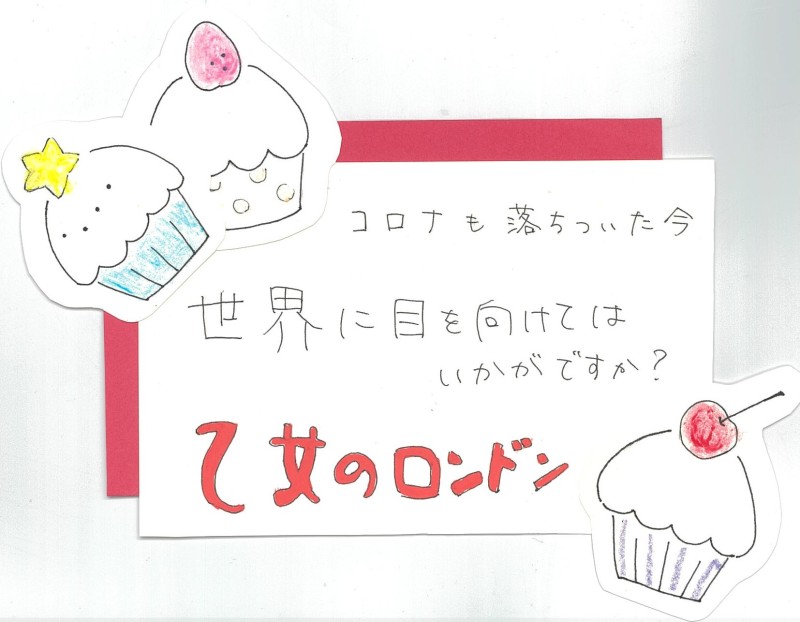 コロナも落ちついた今
世界に目を向けては
いかがですか?
乙女のロンドン